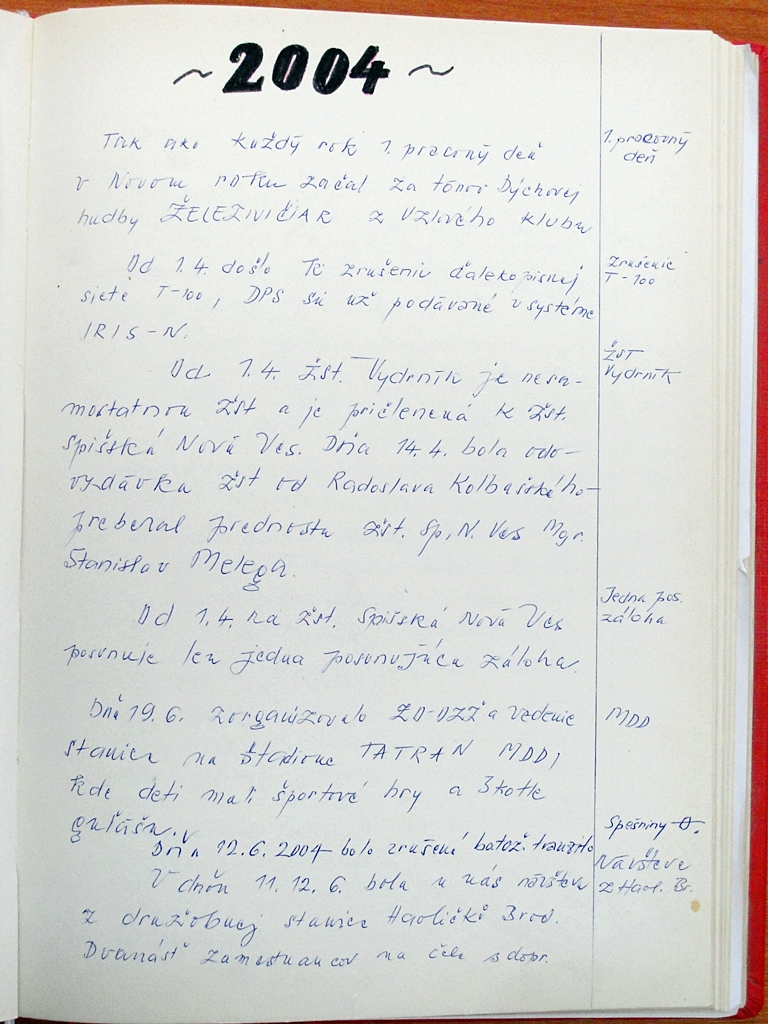 ~ 2004 ~
Tak ako každý rok 1. pracovný deň
1. pracovný
deň
v Novom roku začal za tónov Dychovej
hudby ŽELEZNIČIAR z Uzlového klubu
Od 1.4. došlo k zrušeniu ďalekopisnej
Zrušenie
T-100
siete T-100, DPS sú už podávané v systéme
IRIS-N.
Od 1.4. Žst. Vydrník je nesa-
ŽST
Vydrník
mostatnou žst a je pričlenená k žst.
Spišská Nová Ves. Dňa 14.4. bola odo-
vzdávka žst od Radoslava Kolbašského-
preberal prednosta žst. Sp. N. Ves Mgr.
Stanislav Melega.
Od 1.4. na žst. Spišská Nová Ves
Jedna pos.
záloha
posunuje len jedna posunujúca záloha.
Dňa 19.6. zorganizovalo ZO-OZŽ a vedenie
MDD
stanice na štadióne TATRAN MDD,
kde deti mali športové hry a 3 kotle
gulášu.
Spešniny
Dňa 12.6.2004 bolo zrušené batož. tranzito
Návšteva
z Havl. Br.
V dňoch 11. 12. 6. bola u nás návšteva
z družobnej stanice Havlíčkův Brod.
Dvanásť zamestnancov na čele s dopr.